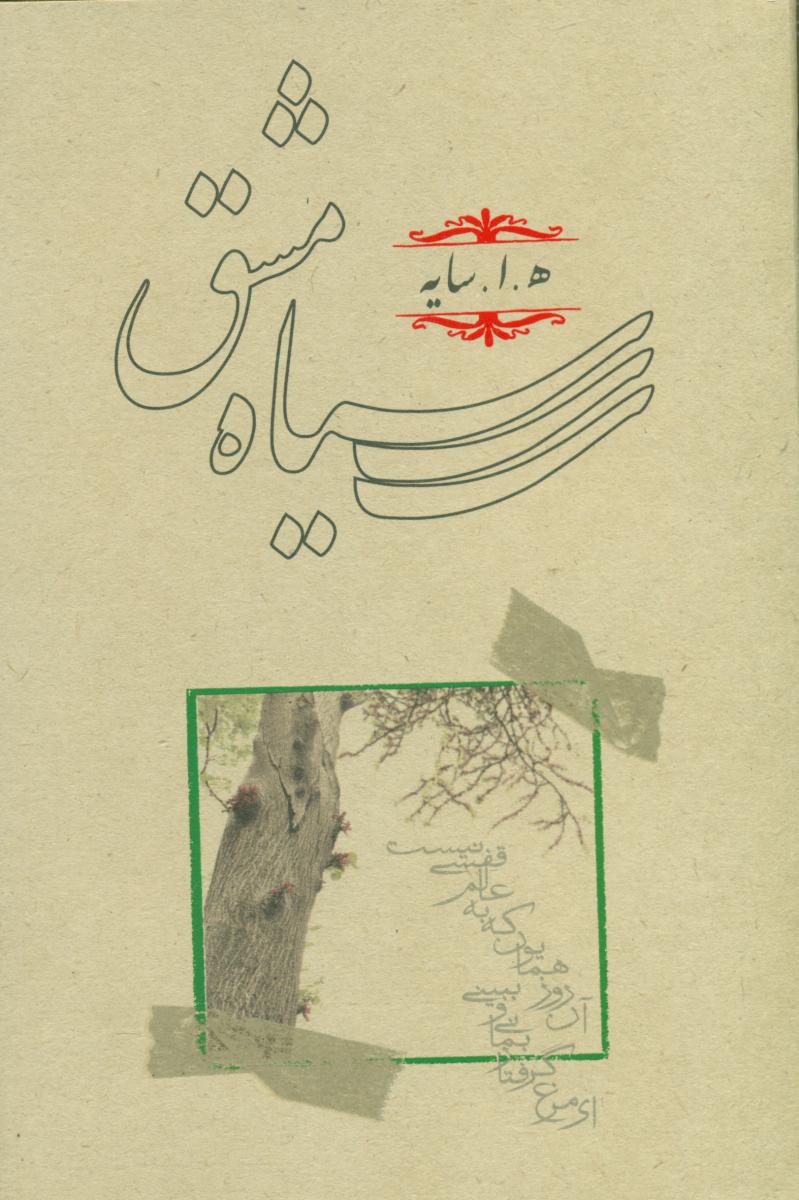 سیاه
مشق
ه‍.ا.سایه
ای مرغ
گرفتار
بمانی
و
ببینی
آن روز
همایون
که به
عالم
قفسی
نیست